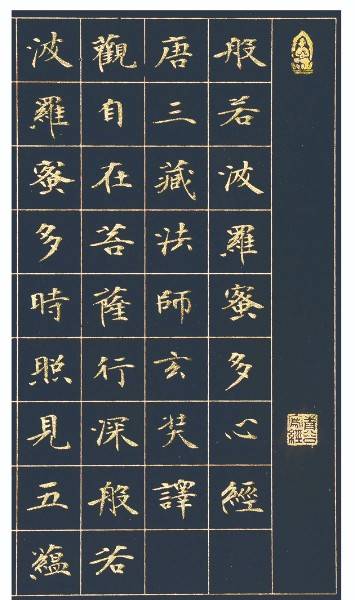 般若波羅蜜多心經
唐三藏法師玄奘譯
觀自在菩薩行深般若
波羅蜜多時照見五蘊